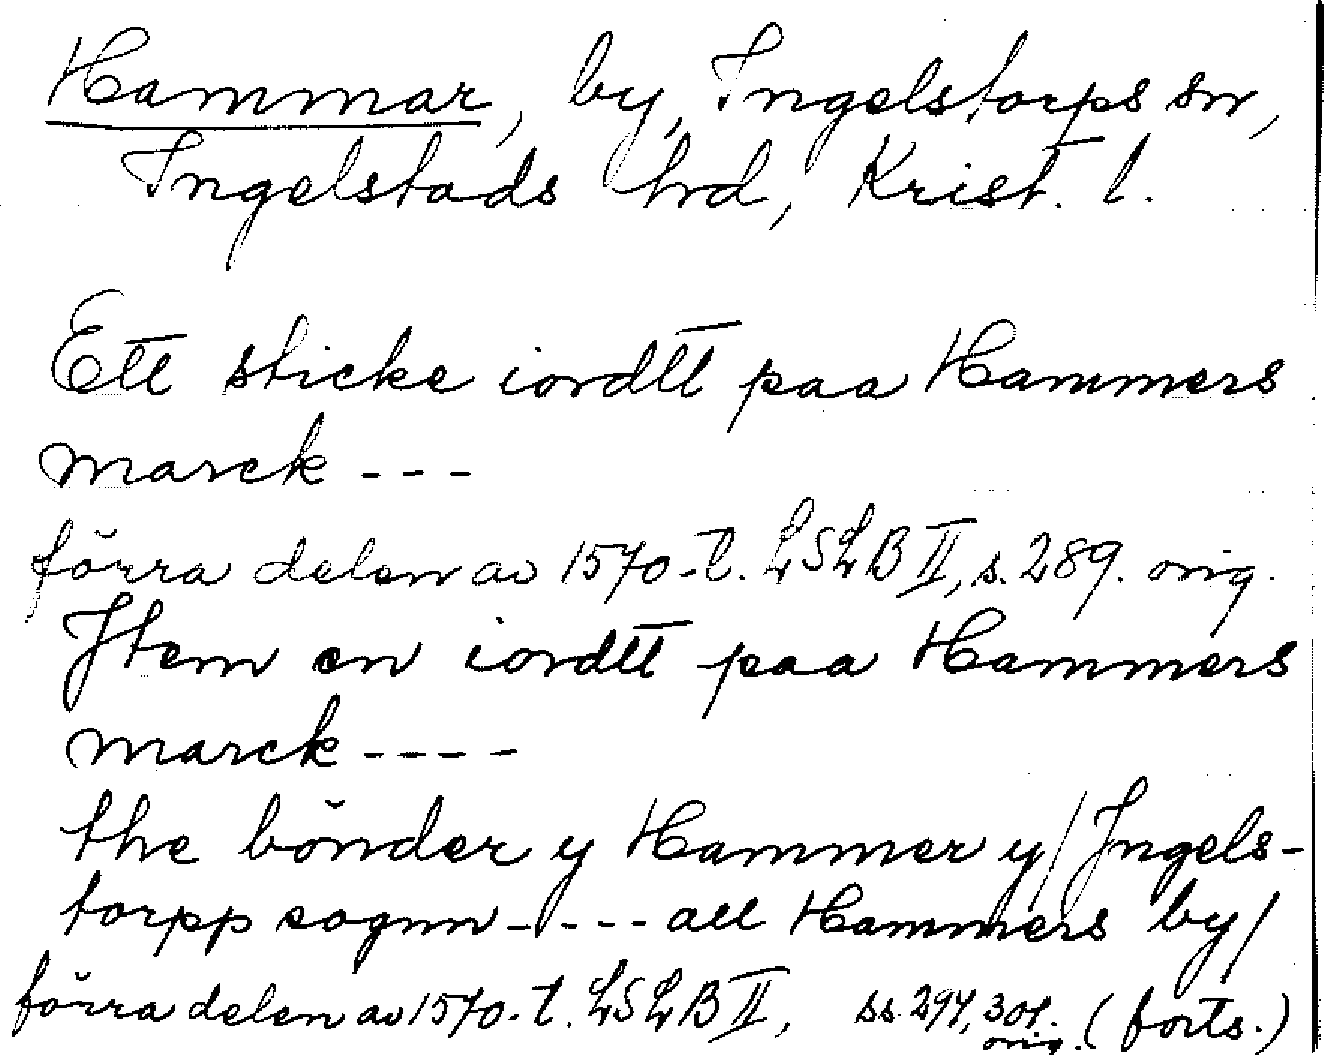 Hammar, by, Ingelstorps sn,
Ingelstads hrd, Krist. l.
Ett sticke iordtt paa Hammers
marck ---
förra delen av 1570-t. LSLB II, s. 289. orig.
Jtem en iordtt paa Hammers
marck ----
the bönder y Hammer y/Jngels-
torpp sognn ---- all Hammers by/
förra delen av 1570-t. LSLB II, ss. 297, 301. (forts.)
orig.